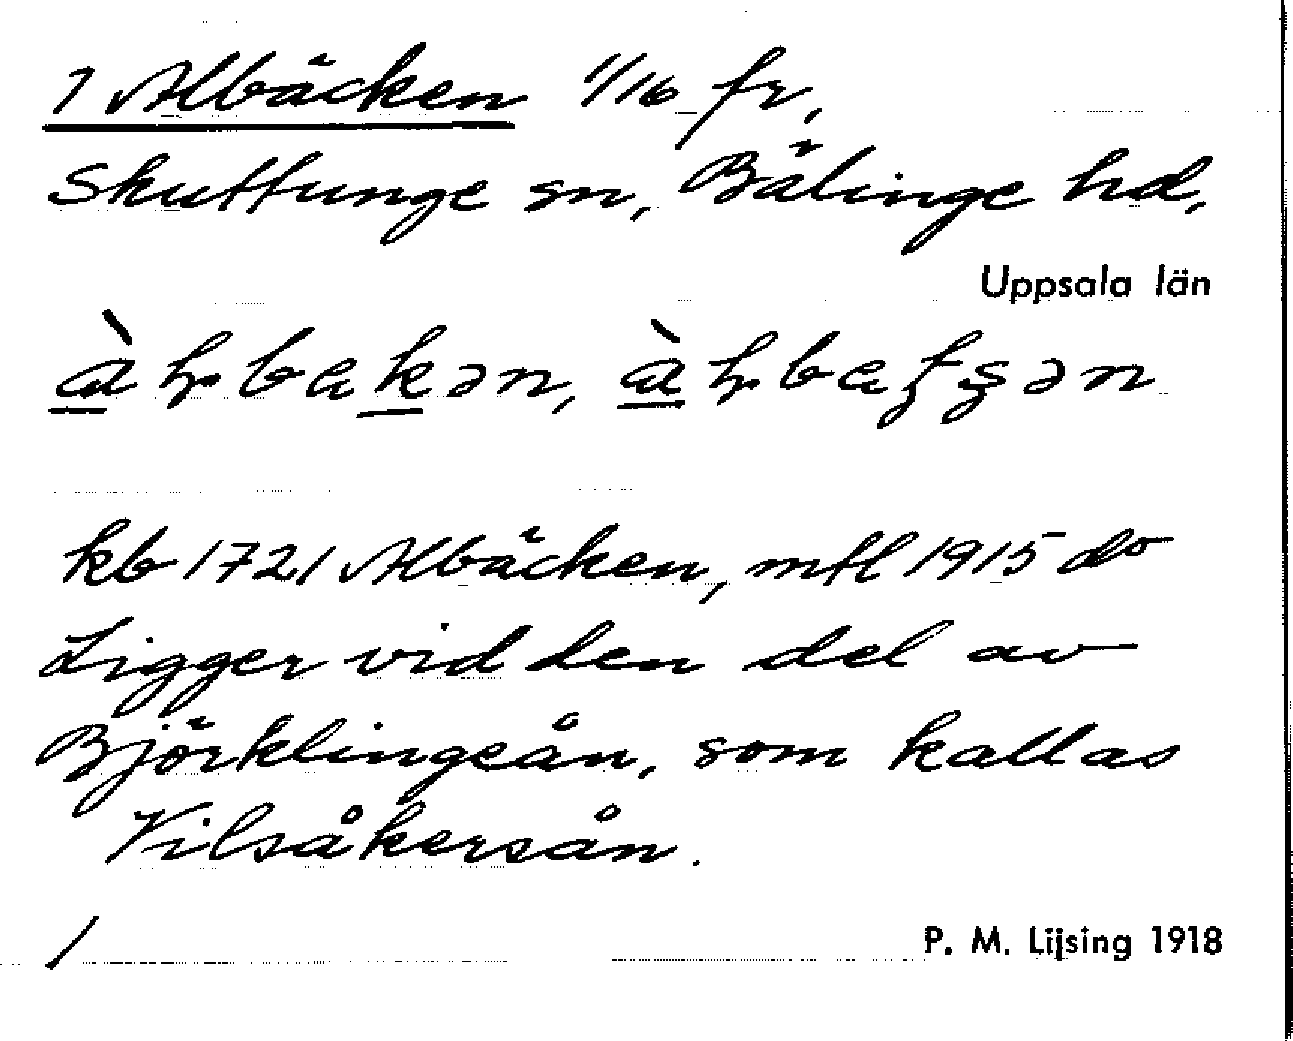 1 Albäcken 1/16 fr,
Skuttunge sn, Bälinge hd,
Uppsala län
kb 1721 Albäcken, mtl 1915 do
Ligger vid den del av
Björklingeån, som kallas
Vilsåkersån.
/
P. M. Lijsing 1918